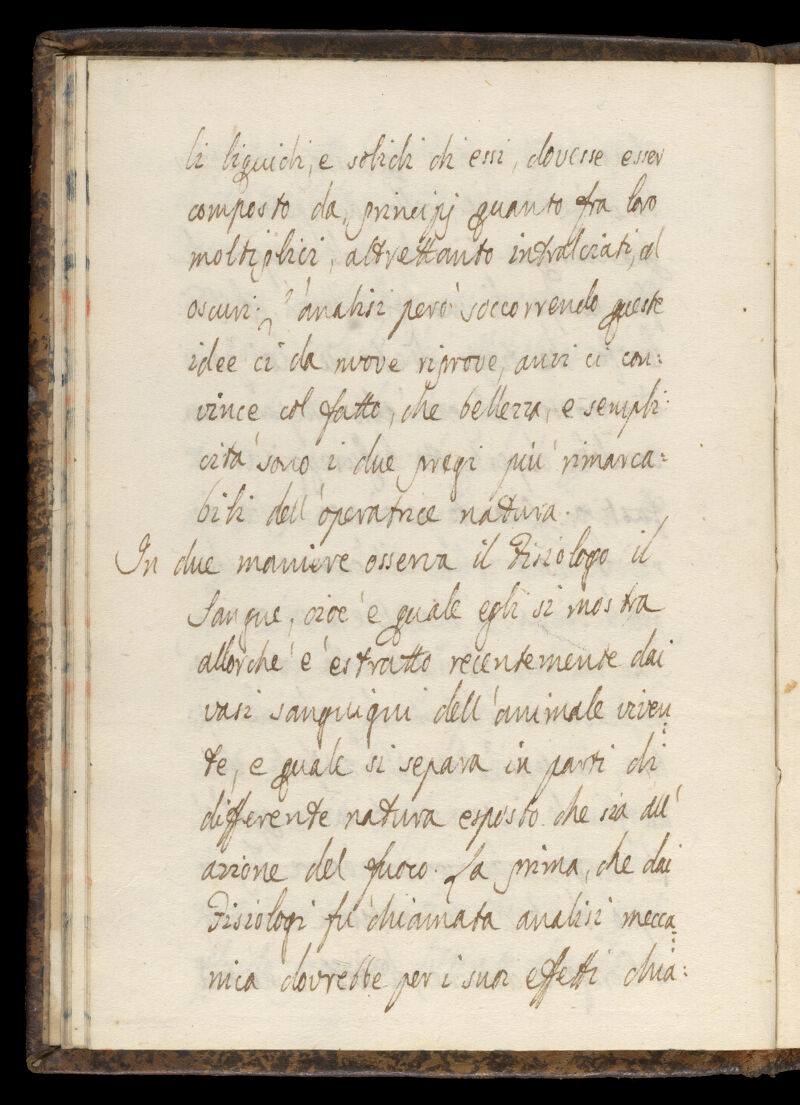 li liquidi, e solidi di essi, dovesse esser
composto da principj quanto fra loro
moltiplici, altrettanto intralciati, ed
oscuri. L'analisi però soccorrendo queste
idee ci da nuove riprove, anzi ci con:
vince col fatto, che bellezza, e sempli:
cità sono i due pregi più rimarca:
bili dell'operatrice natura.
In due maniere osserva il Fisiologo il
Sangue, cioè e quale egli si mostra
allorchè è estratto recentemente dai
vasi sanguigni dell'animale viven:
te, e quale si separa in parti di
differente natura esposto che sia all'
azione del fuoco. La prima, che dai
Fisiologi fù chiamata analisi mecca:
nica dovrebbe per i suoi effetti chia: